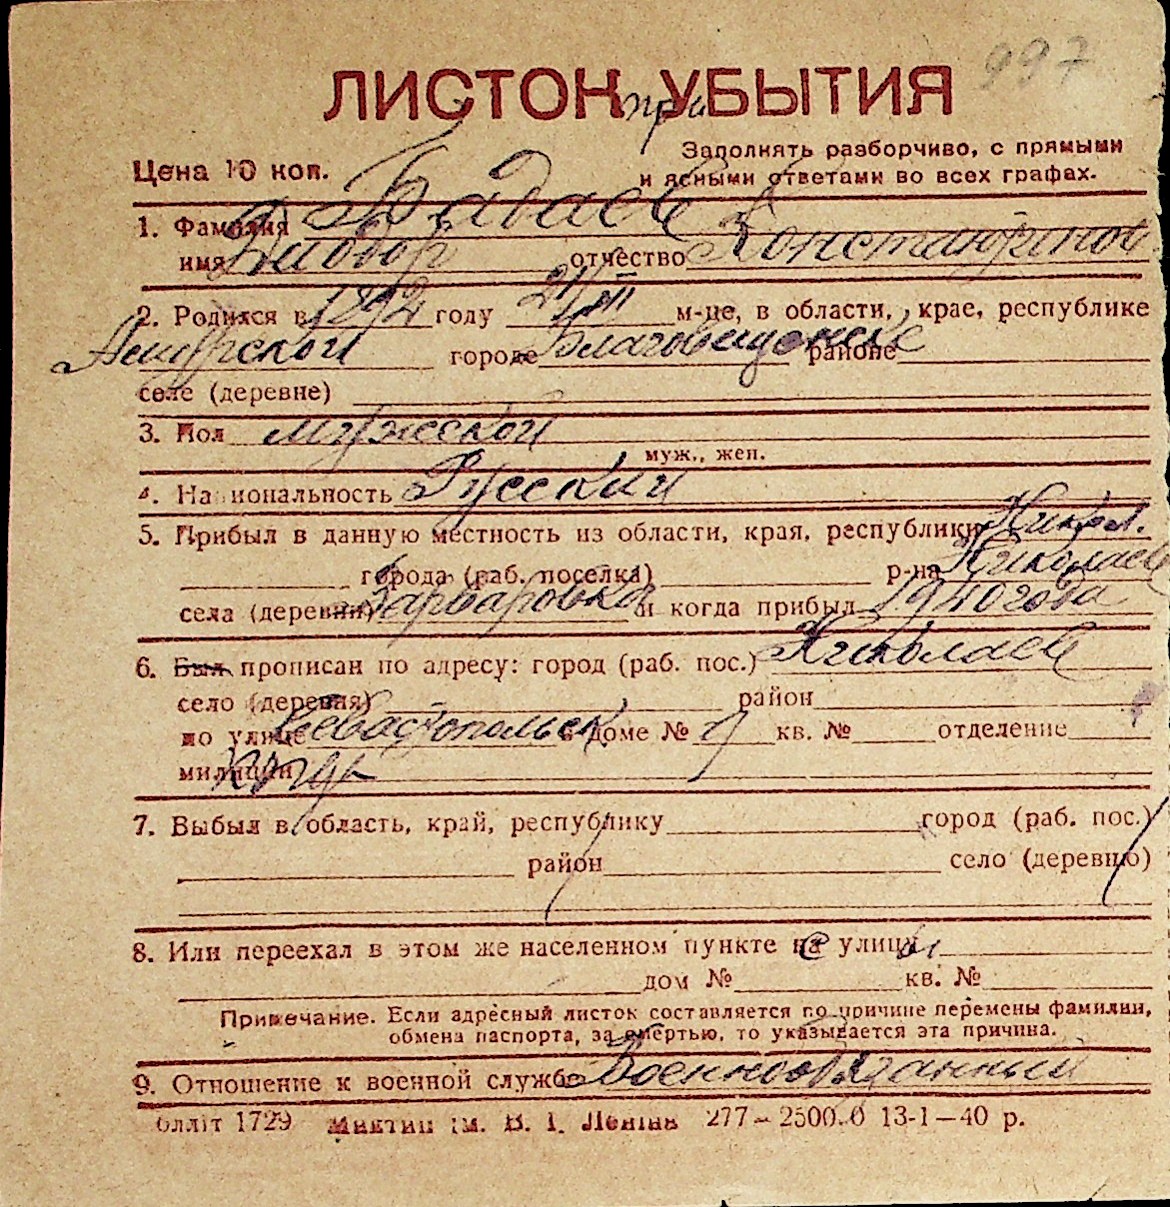 997
ЛИСТОК при УБЫТИЯ
Цена 10 коп.
Заполнять разборчиво, с прямыми
и ясными ответами во всех графах.
1. Фамилия Бадаев
имя Диодор отчество Константинов
2. Родился в 1892 году 21/III м-це, в области, крае, республике
Амурской городе Благовещенске районе
селе (деревне)
3. Пол мужской
муж., жен.
4. Национальность Русский
5. Прибыл в данную местность из области, края, республики Никол.
города (раб. поселка) р-на Николаев
села (деревни) Варваровка и когда прибыл 1940 года
6. Был прописан по адресу: город (раб. пос.) Николаев
село (деревня) район
по улице Севастопольск в доме № кв. № отделение
милиции
7. Выбыл в область, край, республику город (раб. пос.)
район село (деревню)
8. Или переехал в этом же населенном пункте с улицы
дом № кв. №
Примечание. Если адресный листок составляется по причине перемены фамилии,
обмена паспорта, за смертью, то указывается эта причина.
9. Отношение к военной службе Военнообязанный
блліт 1729 ім. В. І. Леніна 277—25000 13-1—40 р.